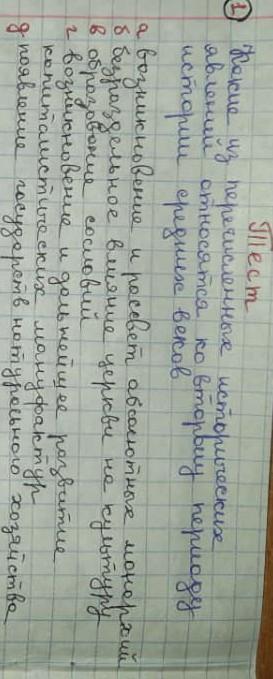 Тест
1 Какие из перечисленных исторических
явлений относятся ко второму периоду
истории средних веков
а возникновение и рассвет абсолютных монархий
б безраздельное влияние церкви на культуру
в образование сословий
г возникновение и дальнейшее развитие
капиталистических мануфактур
д появление государств натурального хозяйства